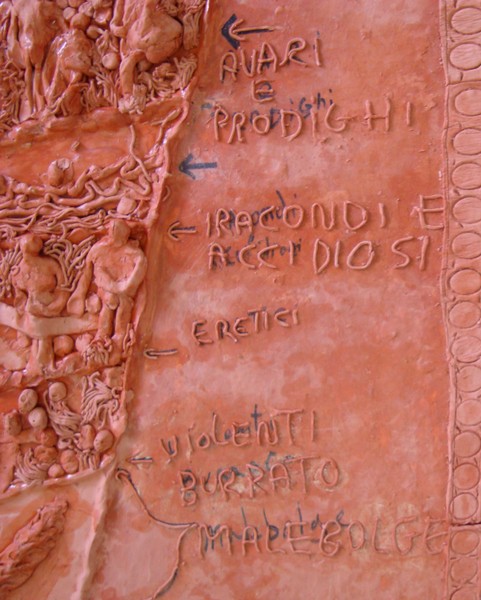 AVARI
E
PRODIGHI
IRACONDI E
ACCIDIOSI
ERETICI
VIOLENTI
BURRATO
MALEBOLGE